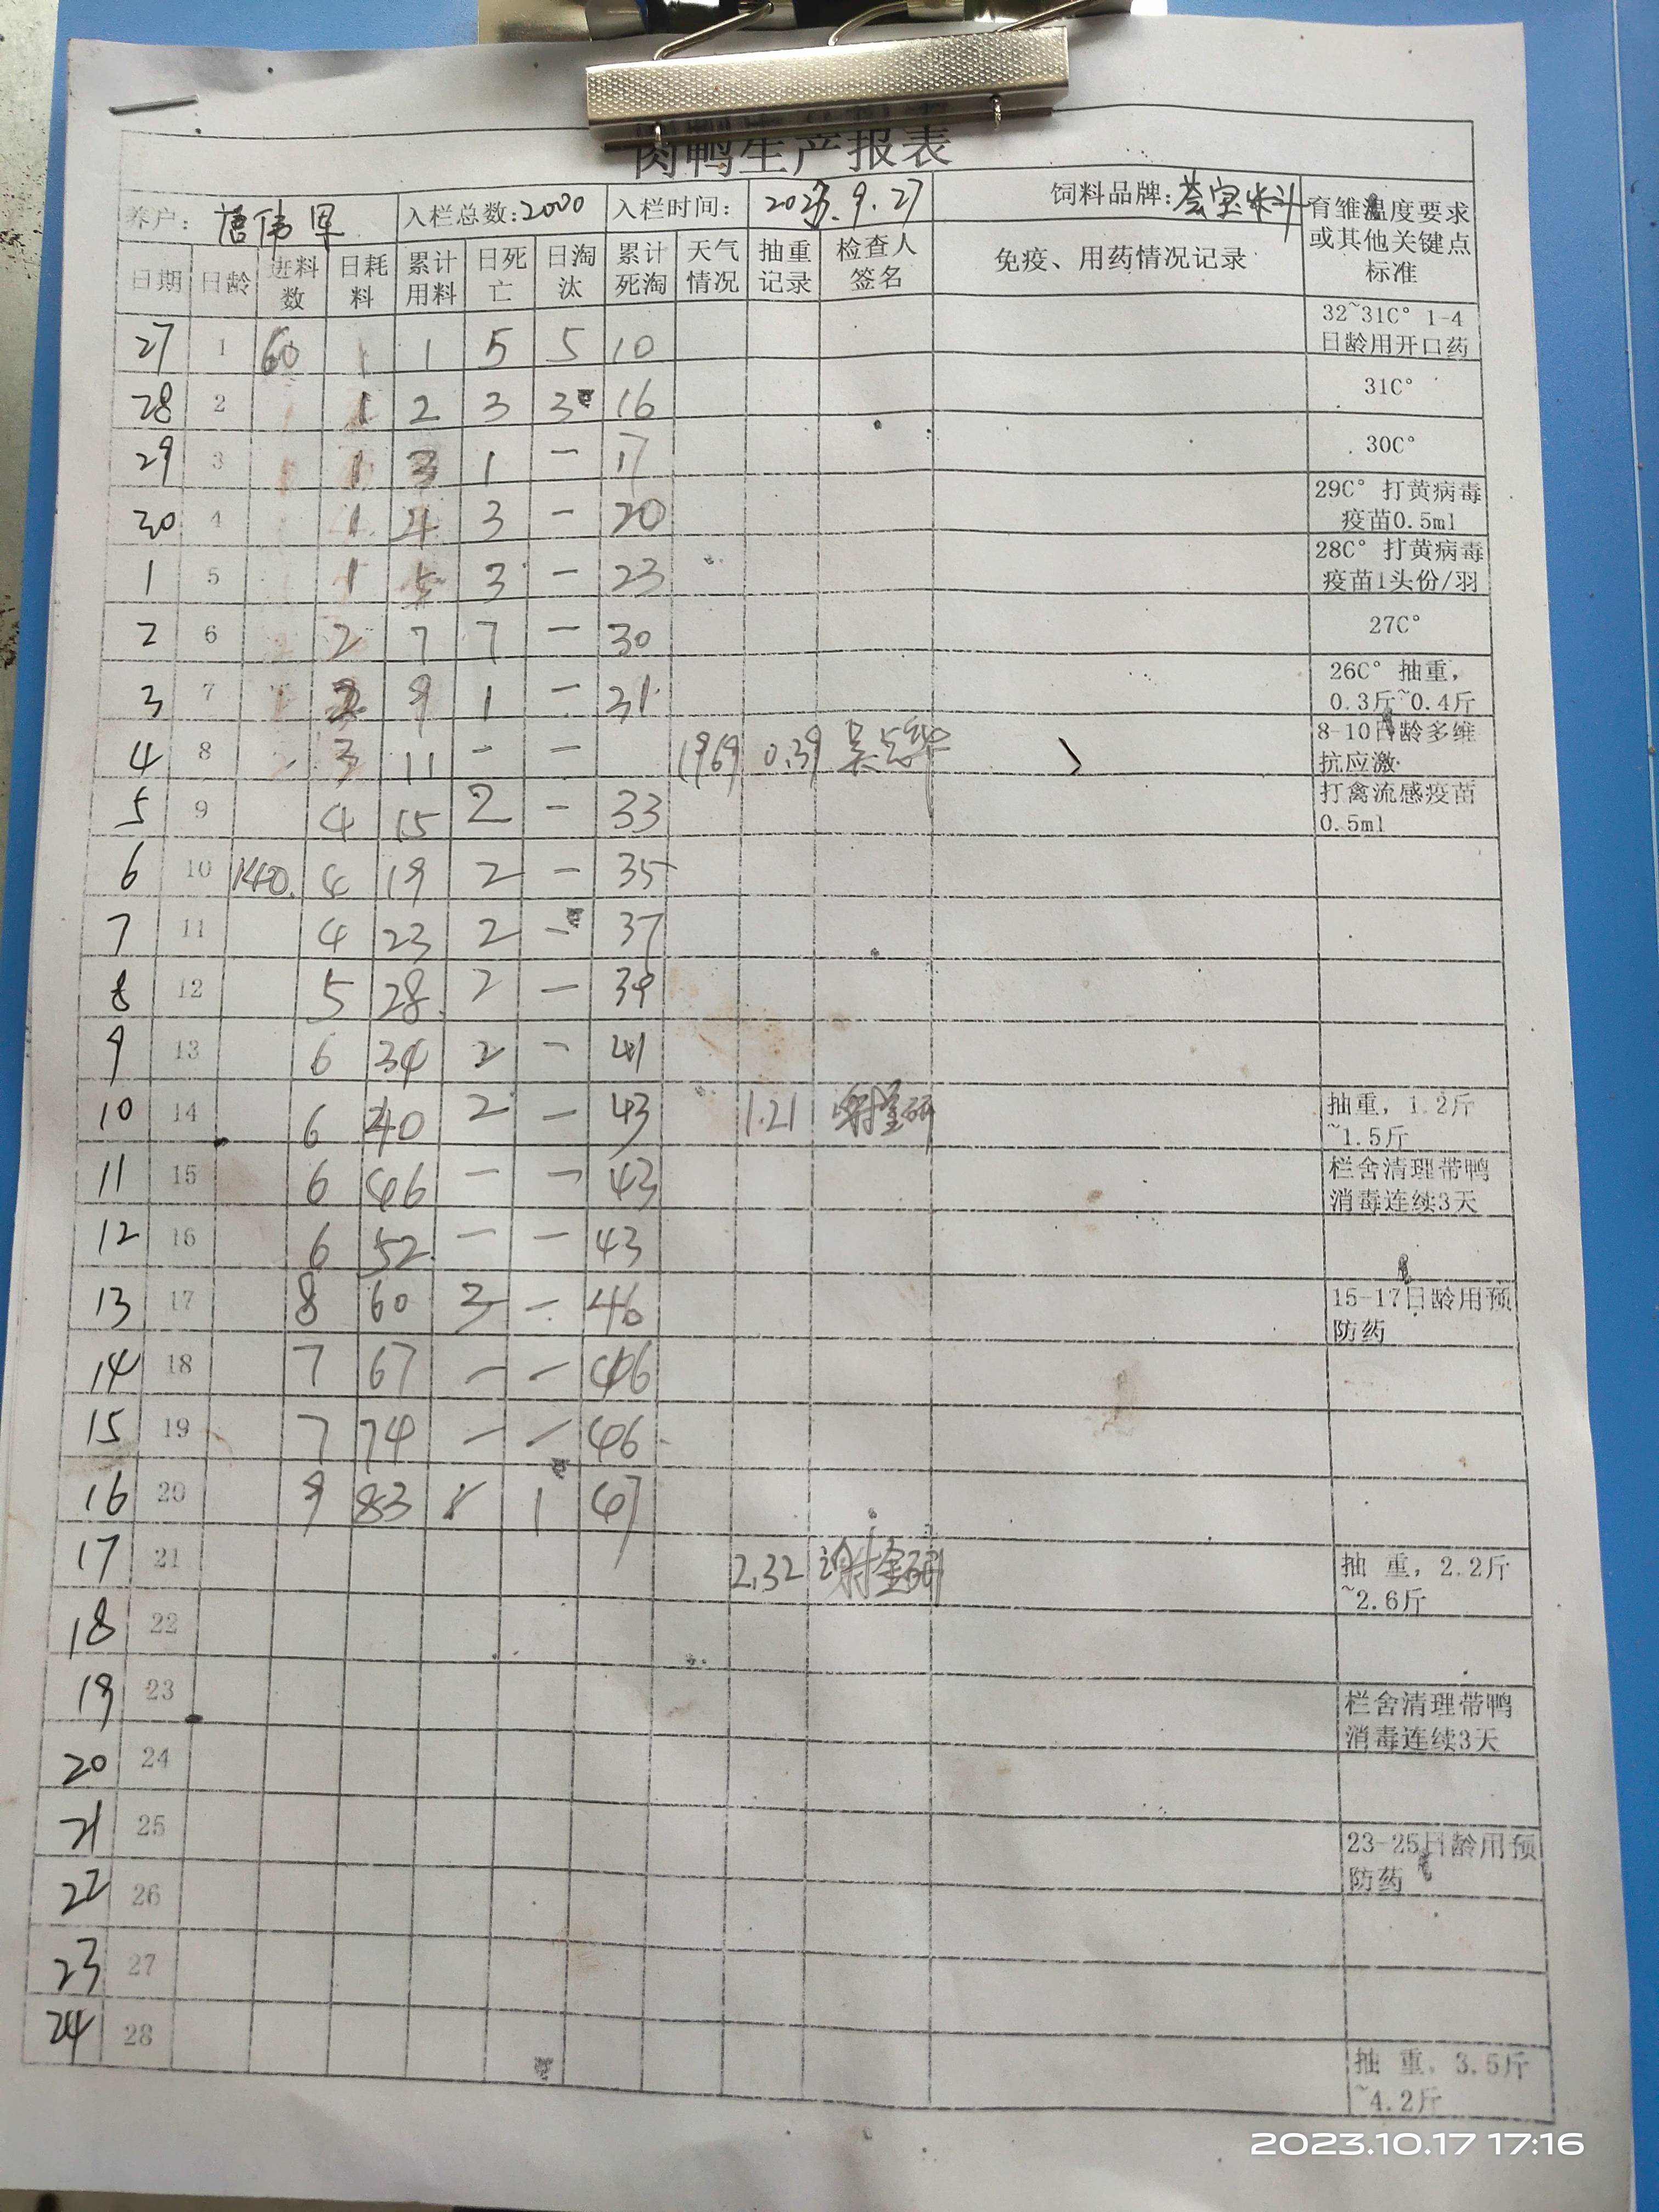 肉鸭生产报表
养户: 唐伟军 入栏总数:2000 入栏时间: 2023.9.27 饲料品牌: 育雏温度要求或其他关键点标准
日期 日龄 进料数 日耗料 累计用料 日死亡 日淘汰 累计死淘 天气情况 抽重记录 检查人签名 免疫、用药情况记录
27 1 60 1 1 5 5 10 32~31C° 1-4日龄用开口药
28 2 1 2 3 3 16 31C°
29 3 1 3 1 - 17 30C°
30 4 1 4 3 - 20 29C° 打黄病毒疫苗0.5ml
1 5 1 5 3 - 23 28C° 打黄病毒疫苗1头份/羽
2 6 2 7 7 - 30 27C°
3 7 2 9 1 - 31 26C° 抽重，0.3斤~0.4斤
4 8 3 11 - - 1969 0.39 吴志华 8-10日龄多维抗应激
5 9 4 15 2 - 33 打禽流感疫苗0.5ml
6 10 140 4 19 2 - 35
7 11 4 23 2 - 37
8 12 5 28 2 - 39
9 13 6 34 2 - 41
10 14 6 40 2 - 43 1.21 抽重，1.2斤~1.5斤
11 15 6 46 - - 43 栏舍清理带鸭消毒连续3天
12 16 6 52 - - 43
13 17 8 60 3 - 46 15-17日龄用预防药
14 18 7 67 - - 46
15 19 7 74 - - 46
16 20 9 83 1 47
17 21 2.32 抽 重，2.2斤~2.6斤
18 22
19 23 栏舍清理带鸭消毒连续3天
20 24
21 25 23-25日龄用预防药
22 26
23 27
24 28 抽 重，3.5斤~4.2斤
2023.10.17 17:16